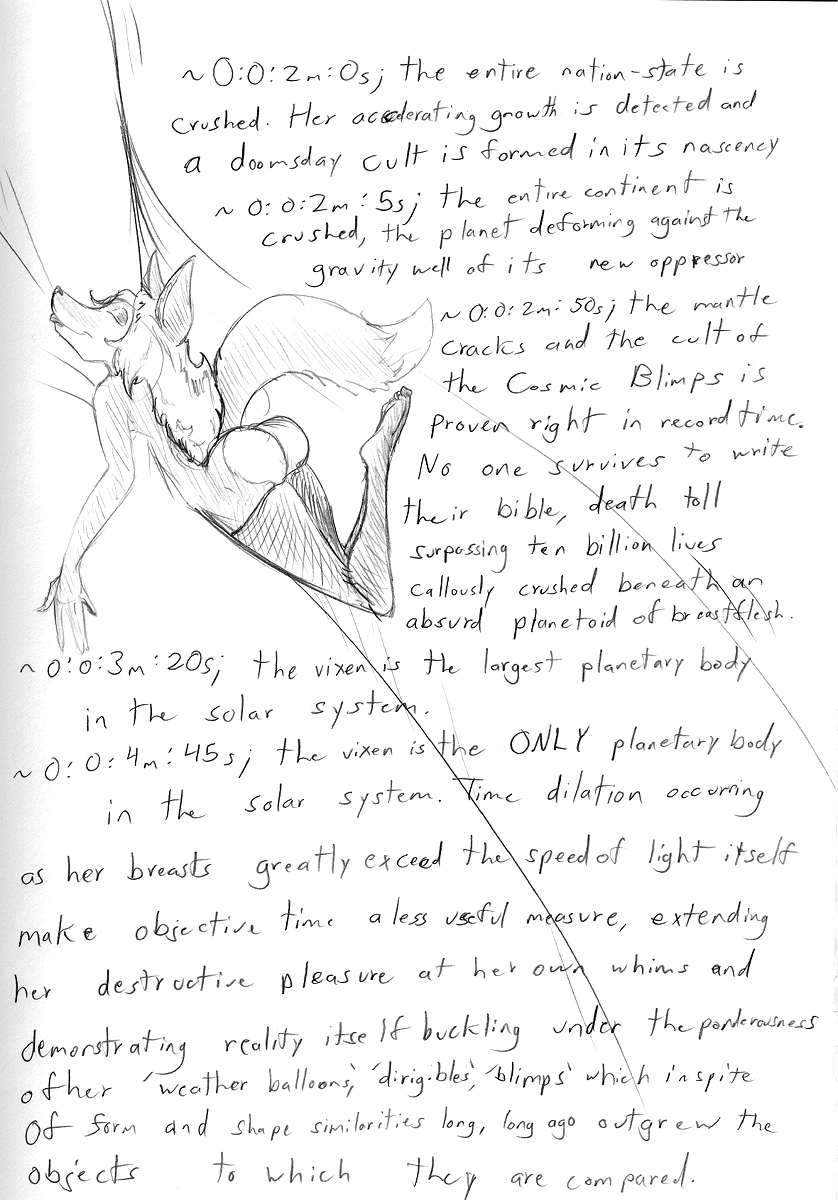 ~ 0:0:2m:0s; the entire nation-state is
crushed. Her accelerating growth is detected and
a doomsday cult is formed in its nascency
~ 0:0:2m:5s; the entire continent is
crushed, the planet deforming against the
gravity well of its new oppressor
~ 0:0:2m:50s; the mantle
cracks and the cult of
the Cosmic Blimps is
proven right in record time.
No one survives to write
their bible, death toll
surpassing ten billion lives
callously crushed beneath an
absurd planetoid of breastflesh.
~ 0:0:3m:20s; the vixen is the largest planetary body
in the solar system.
~ 0:0:4m:45s; the vixen is the ONLY planetary body
in the solar system. Time dilation occurring
as her breasts greatly exceed the speed of light itself
make objective time a less useful measure, extending
her destructive pleasure at her own whims and
demonstrating reality itself buckling under the ponderousness
of her 'weather balloons', 'dirigibles', 'blimps' which inspite
of form and shape similarities long, long ago outgrew the
objects to which they are compared.